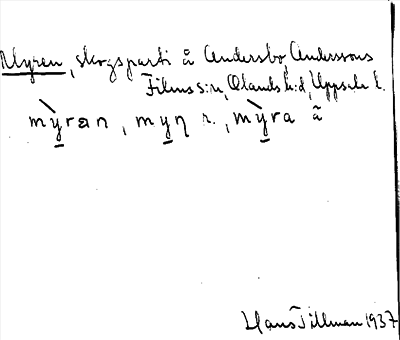 Myren, skogsparti å Andersbo, Anderssons
Films s:n, Olands h:d, Uppsala l.
mỳran, myn r., mỳra ã
Hans Tillman 1937